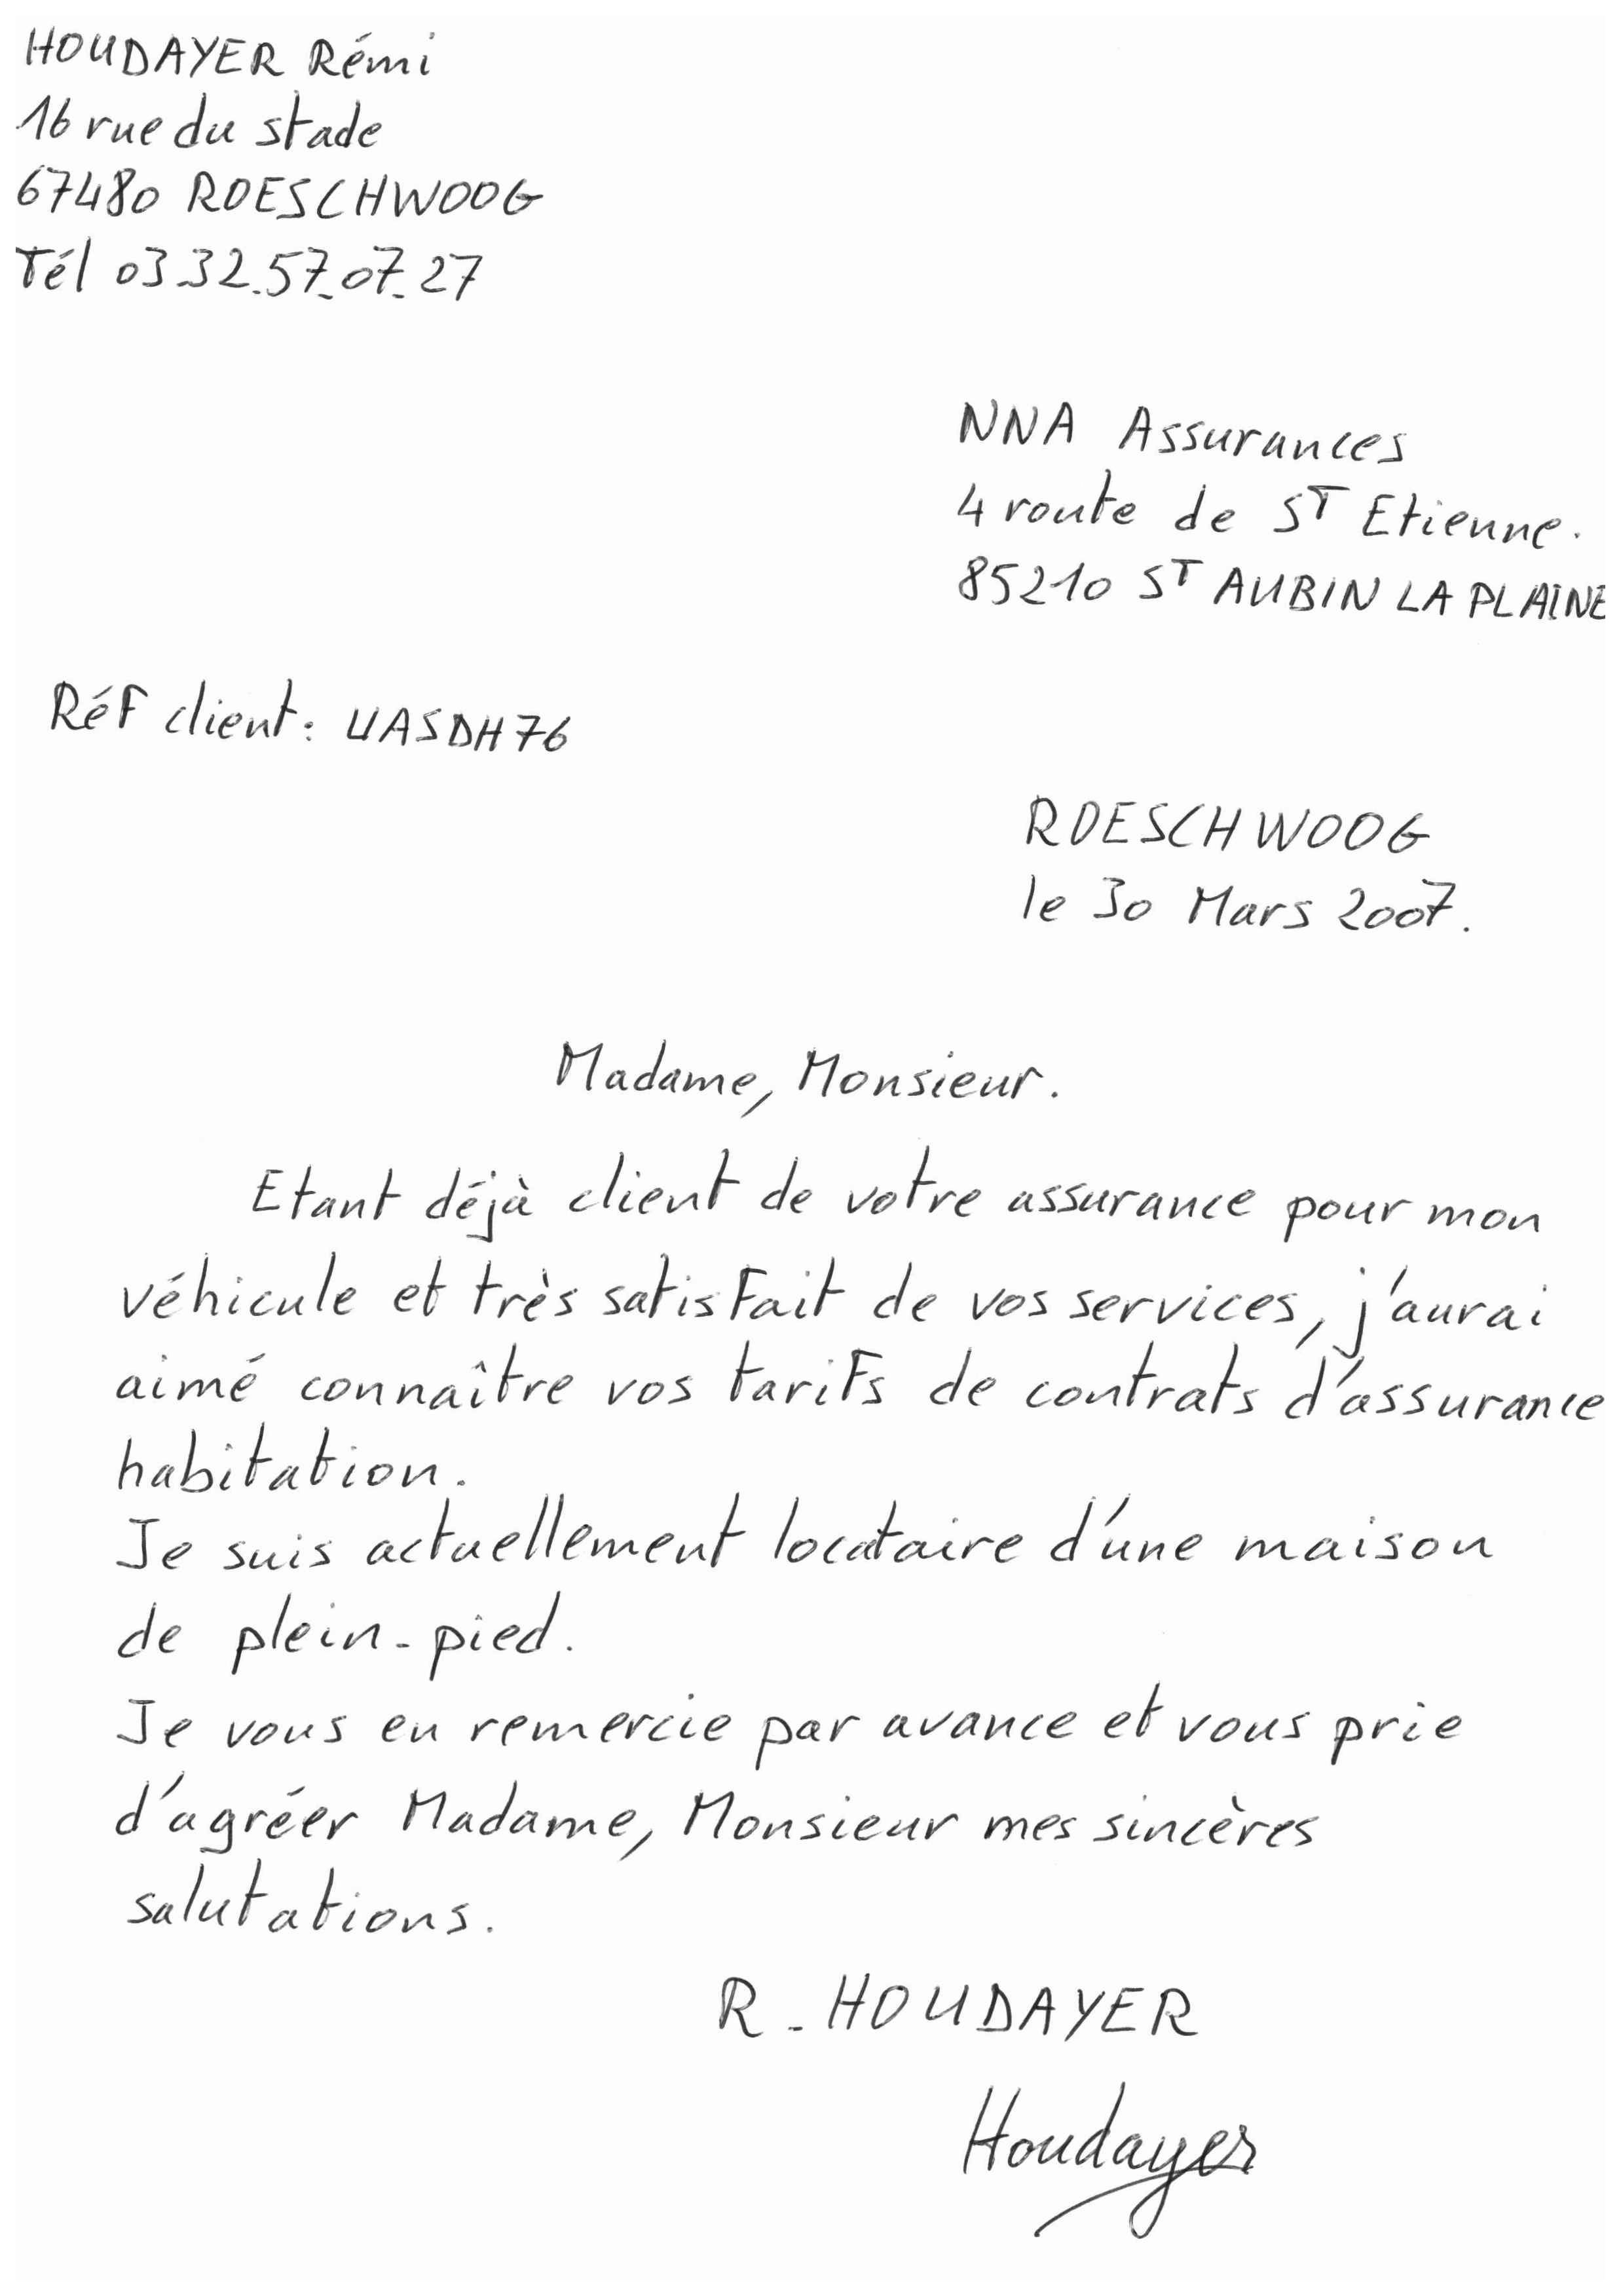 HOUDAYER Rémi
16 rue du stade
67480 ROESCHWOOG
Tél 03.32.57.07.27
NNA Assurances
4 route de ST Etienne.
85210 ST AUBIN LA PLAINE
Réf client : UASDH76
ROESCHWOOG
le 30 Mars 2007.
Madame, Monsieur.
Etant déjà client de votre assurance pour mon
véhicule et très satisfait de vos services, j'aurai
aimé connaître vos tarifs de contrats d'assurance
habitation.
Je suis actuellement locataire d'une maison
de plein-pied.
Je vous en remercie par avance et vous prie
d'agréer Madame, Monsieur mes sincères
salutations.
R. HOUDAYER
Houdayer